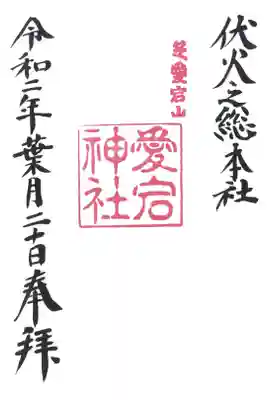 伏火之総本社
芝愛宕山
愛宕
神社
令和二年葉月二十日奉拝